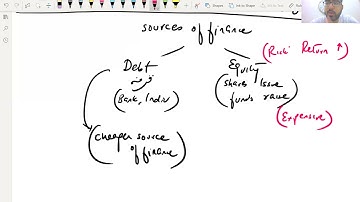 sources of finance
Debt
قرضہ
(Bank, Indiv)
Equity
(Shares Issue
funds raise)
(Risk Return ↑)
(Expensive)
(cheaper source
of finance)